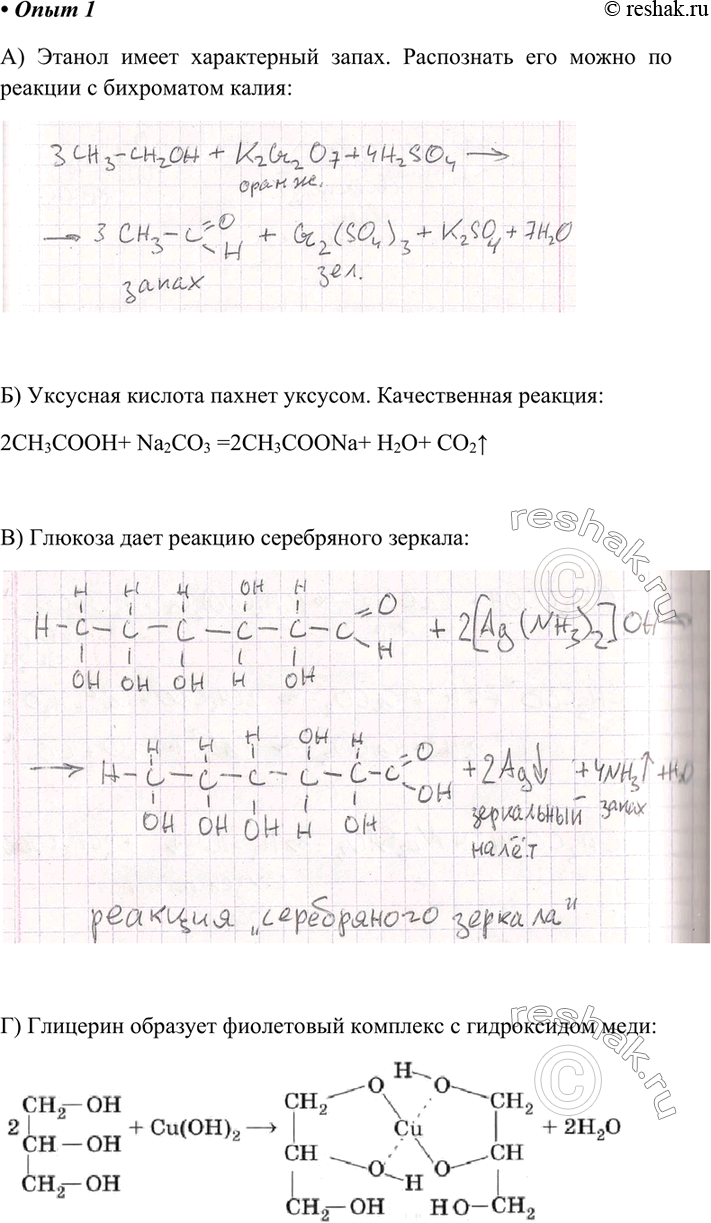 • Опыт 1
© reshak.ru
А) Этанол имеет характерный запах. Распознать его можно по
реакции с бихроматом калия:
3CH₃-CH₂OH + K₂Cr₂O₇ + 4H₂SO₄ →
оранж.
→ 3 CH₃-C=O H + Cr₂(SO₄)₃ + K₂SO₄ + 7H₂O
запах зел.
Б) Уксусная кислота пахнет уксусом. Качественная реакция:
2CH₃COOH+ Na₂CO₃ =2CH₃COONa+ H₂O+ CO₂↑
В) Глюкоза дает реакцию серебряного зеркала:
H H H OH H
H-C-C-C-C-C-C=O H + 2[Ag(NH₃)₂]OH
OH OH OH H OH
H H H OH H
→ H-C-C-C-C-C-C=O OH + 2Ag↓ + 4NH₃↑ + H₂O
OH OH OH H OH
зеркальный запах
налёт
реакция „серебряного зеркала"
Г) Глицерин образует фиолетовый комплекс с гидроксидом меди:
CH₂—OH
2 CH—OH + Cu(OH)₂ →
CH₂—OH
H
CH₂ O O CH₂
Cu + 2H₂O
CH O O CH
H
CH₂—OH HO—CH₂
reshak.ru
reshak.ru